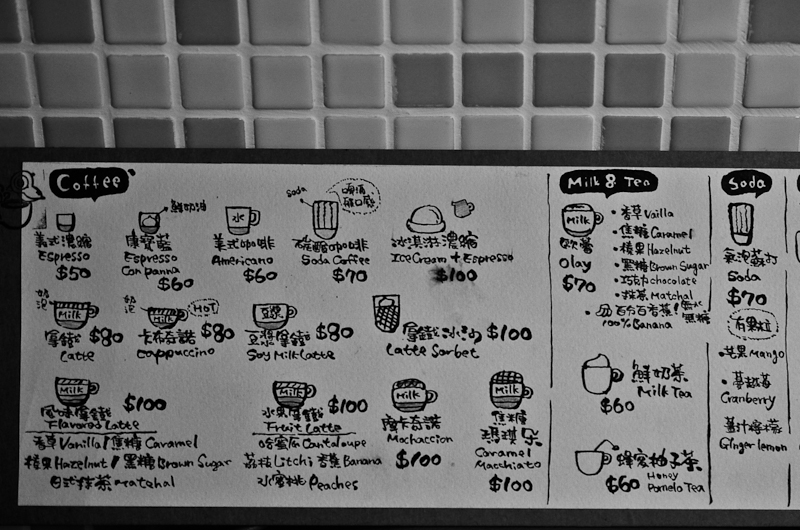 Coffee
鮮奶油
soda
美式濃縮
Espresso
$50
康寶藍
Espresso
Con panna
$60
水
美式咖啡
Americano
$60
碳酸咖啡
Soda Coffee
$70
冰淇淋濃縮
Ice Cream + Espresso
$100
奶泡
Milk
拿鐵 $80
Latte
奶泡
Milk
HOT
卡布奇諾 $80
Cappuccino
豆漿
豆漿拿鐵 $80
Soy Milk Latte
拿鐵冰沙 $100
Latte Sorbet
Milk
風味拿鐵 $100
Flavored Latte
香草 Vanilla / 焦糖 Caramel
榛果 Hazelnut / 黑糖 Brown Sugar
日式抹茶 matchal
Milk
水果拿鐵 $100
Fruit Latte
哈蜜瓜 Cantaloupe
荔枝 Litchi 香蕉 Banana
水蜜桃 Peaches
Milk
摩卡奇諾
Mochaccion
$100
Milk
焦糖
瑪琪朵
Caramel
Macchiato
$100
Milk & Tea
Milk
歐蕾
Olay
$70
• 香草 Vailla
• 焦糖 Caramel
• 榛果 Hazelnut
• 黑糖 Brown Sugar
• 巧克力 chocolate
• 抹茶 Matchal
百分百香蕉 /
黑糖
100% Banana
鮮奶茶
Milk Tea
$60
蜂蜜柚子茶
$60 Honey
Pomelo Tea
Soda
氣泡蘇打
Soda
$70
有果粒
• 芒果 Mango
• 蔓越莓
Cranberry
薑汁檸檬
Ginger lemon